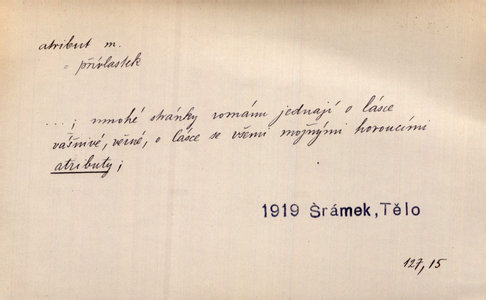 atribut m.
= přívlastek
...; mnohé stránky románu jednají o lásce
vášnivé, věrné, o lásce se všemi možnými horoucími
atributy;
1919 Šrámek, Tělo
127, 15